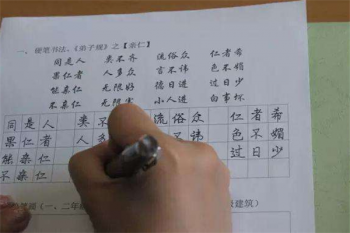 一、硬笔书法:《弟子规》之【亲仁】
同是人 类不齐 流俗众 仁者希
果仁者 人多畏 言不讳 色不媚
能亲仁 无限好 德日进 过日少
不亲仁 无限害 小人进 百事坏
同是人 类不 流俗众 仁者希
果仁者 人 不讳 色不媚
能亲仁 过日少
不亲仁
(一、二年 级建筑)